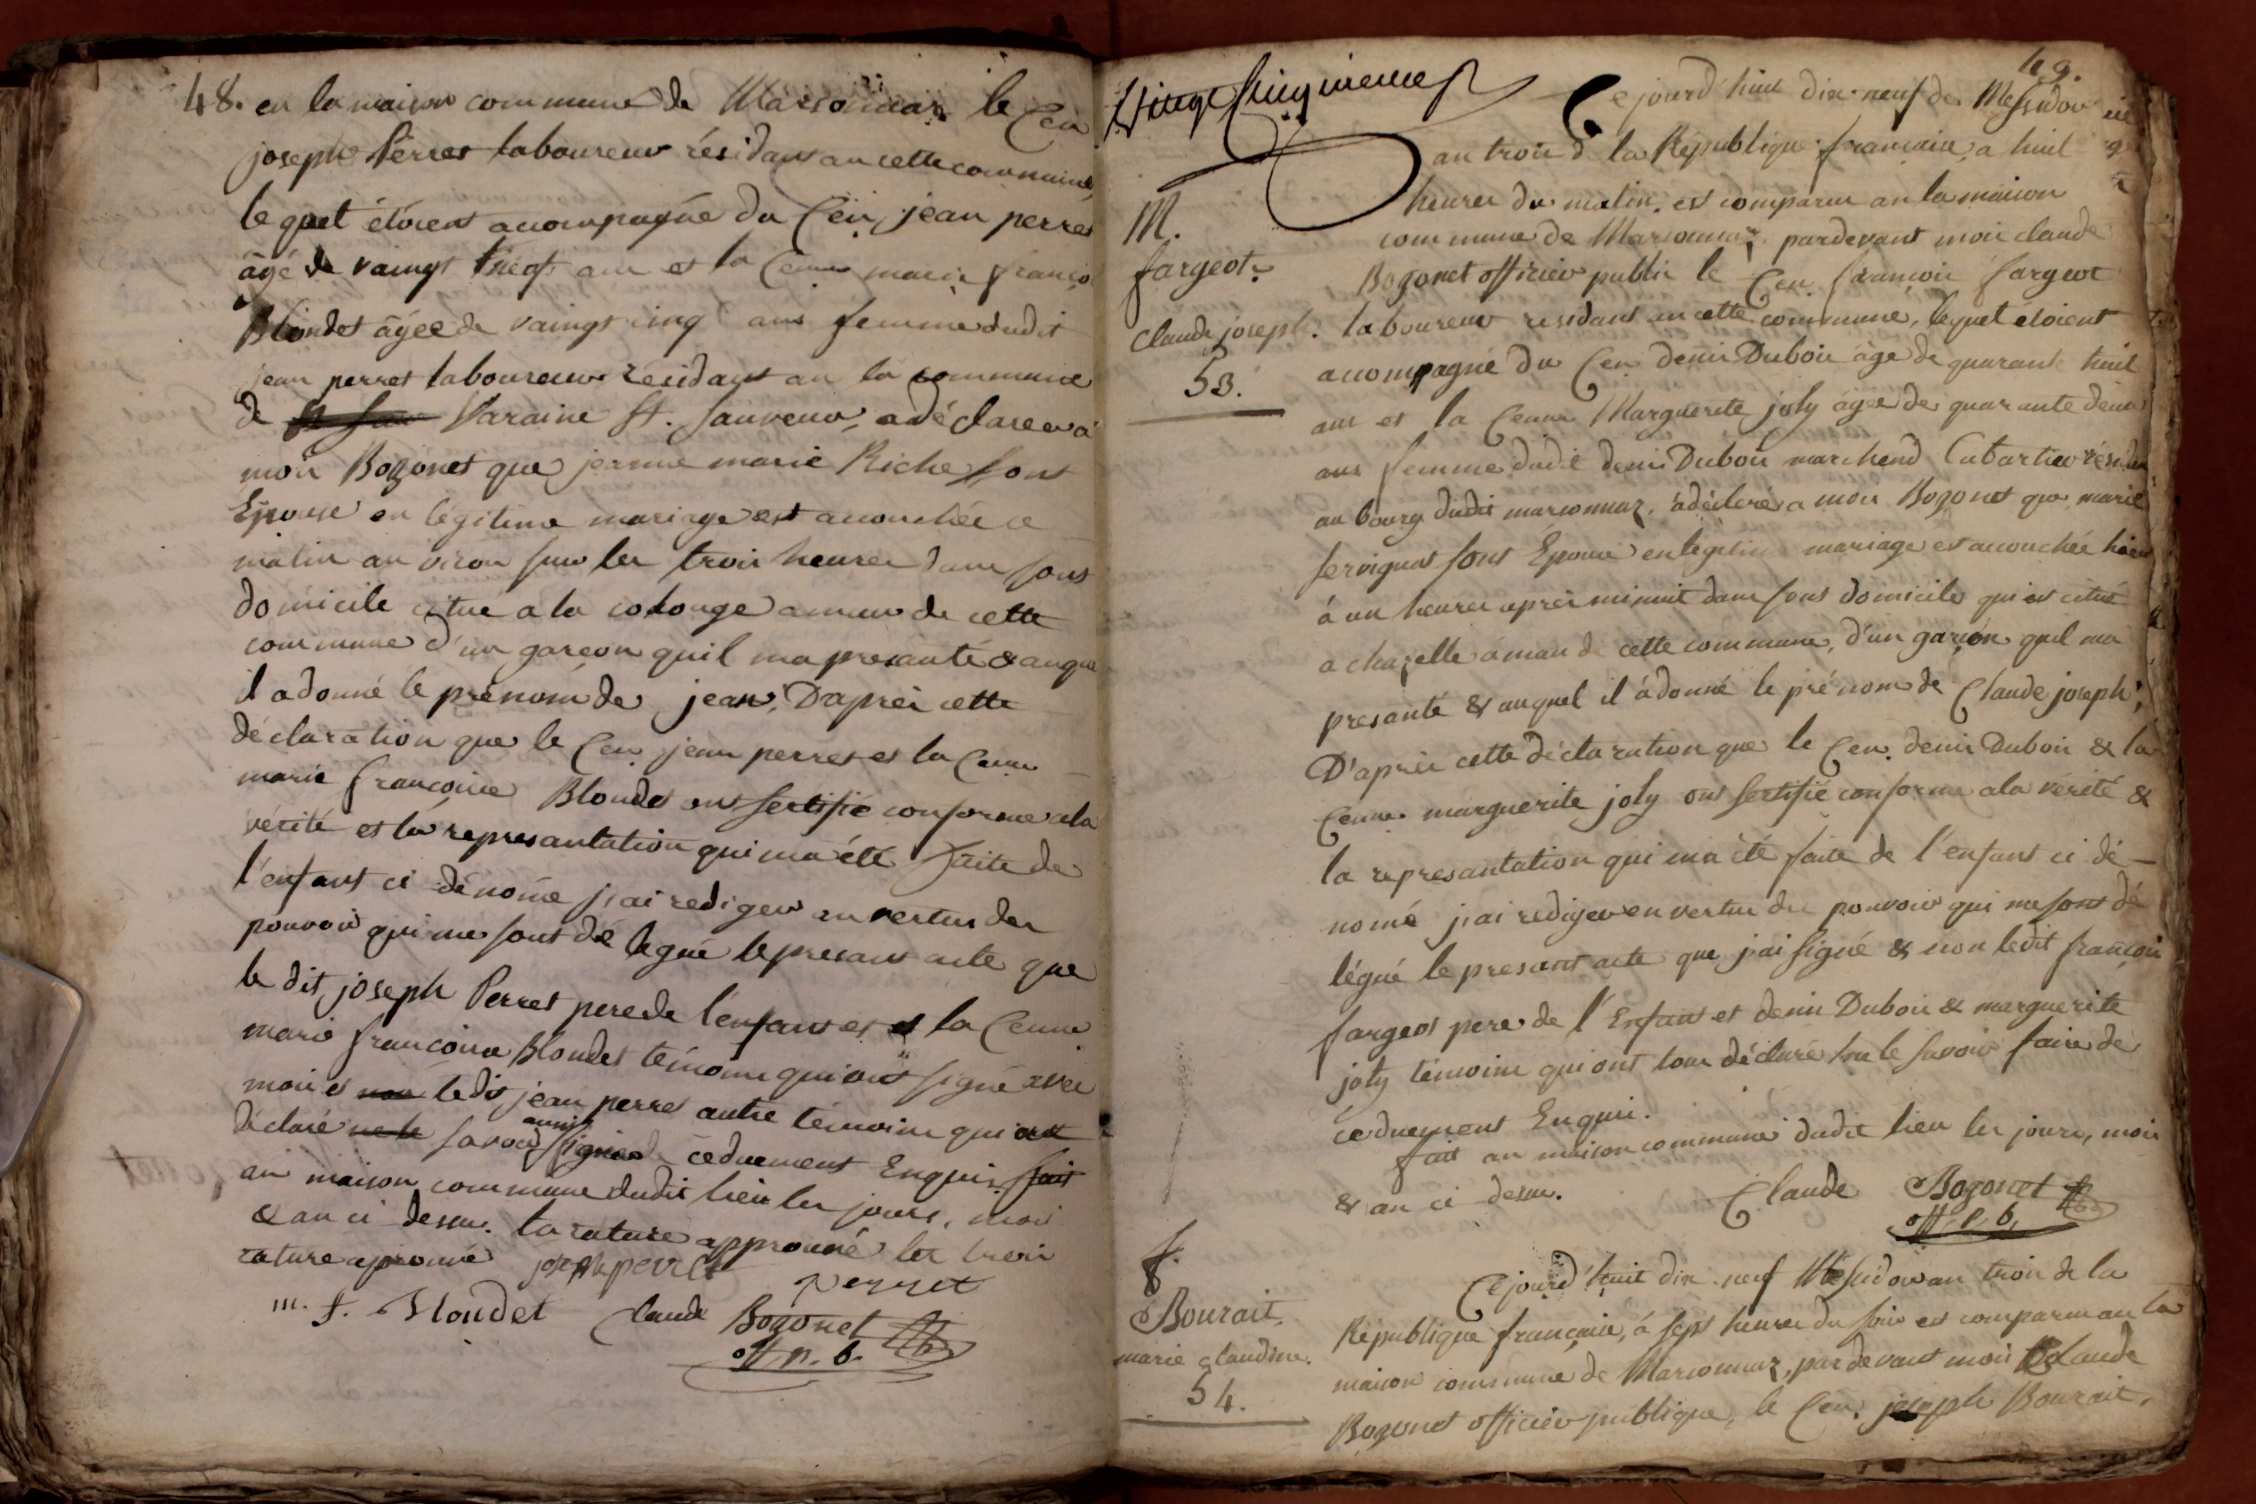 48. en la maison commune de Marsonnaz le Cen
joseph Perret laboureur résidant an cette commune
le quel étoient acompagné du Cen jean perret
âgé de vaingt neof ans et la Cenne marie françoi
Blondet âgée de vaingt cinq ans femme dudit
jean perret laboureur résidant an la commune
de Varaine St. Sauveur, a déclarer a
moi Bozonet que jeanne marie Riche sont
Epouse en légitime mariage est acouchée ce
matin an viron sur les trois heures dans sons
domicile citué a la colonge amau de cette
commune d'un garçon quil ma presanté & auque
il a donné le prénom de jean, D'après cette
déclaration que le Cen jean perret et la Cenne
marie françoise Blondet ont sertifié conforme ala
vérité et la représantation qui ma été faite de
l'enfant ci dénomé j'ai rediger en vertus des
pouvoir qui me sont dé légué le presant acte que
le dit joseph Perret pere de l'enfant et la Cenne
marie françoise Blondet témoins qui ont signé avec
moi et ledit jean perret autre témoins qui ont
déclaré savoir aussi signer de céduement Enquis. fait
an maison commune dudit lieu les jours, mois
& an ci dessu. la rature approuvé les trois
rature aprouvé joseph perret
perret
m. f. Blondet Claude Bozonet
off. p. b.
49.
Vingt cinquieme
M.
fargeot
Claude joseph.
53.
Ce jourd'huit dix-neuf de Messidor
an trois d la République française, a huit
heures du matin, est comparu an la maison
commune de Marsonnaz pardevant moi claude
Bozonet officier public le Cen françois fargeot
laboureur residant an cette commune, lequel étoient
acompagné du Cen denis Dubois âgé de quarante huit
ans et la Cenne Marguerite joly âgée de quarante deux
ans femme dudit denis Dubois marchend Cabartier résidan
au bourg dudit marsonnaz, a déclaré a moi Bozonet que marie
servignat sont Epouse en légitim mariage est acouchée hier
à un heures après minuit dans sons domicile qui est citué
a chazelle aman d cette commune, d'un garçon quil ma
presanté & auquel il à donné le prénom de Claude joseph,
D'après cette déclaration que le Cen denis Dubois & la
Cenne marguerite joly ont sertifié conforme ala vérité &
la représantation qui ma été faite de l'enfant ci dé-
nomé j'ai rediger en vertu des pouvoir qui me sont dé
légué le presant acte que j'ai signé & non ledit françois
fargeot pere de l'Enfant et denis Dubois & marguerite
joly témoins qui ont tous déclaré ne le savoir faire de
ce duement Enquis.
fait an maison commune dudit lieu les jours, mois
& an ci dessu. Claude Bozonet
off. p. b.
f.
Bourait.
marie claudine.
54.
Ce jourd'huit dix-neuf Messidor an trois de la
République française, à sept heures du soir est comparu an la
maison commune de Marsonnaz, par devant moi Claude
Bozonet officier publique, le Cen. joseph Bourait,